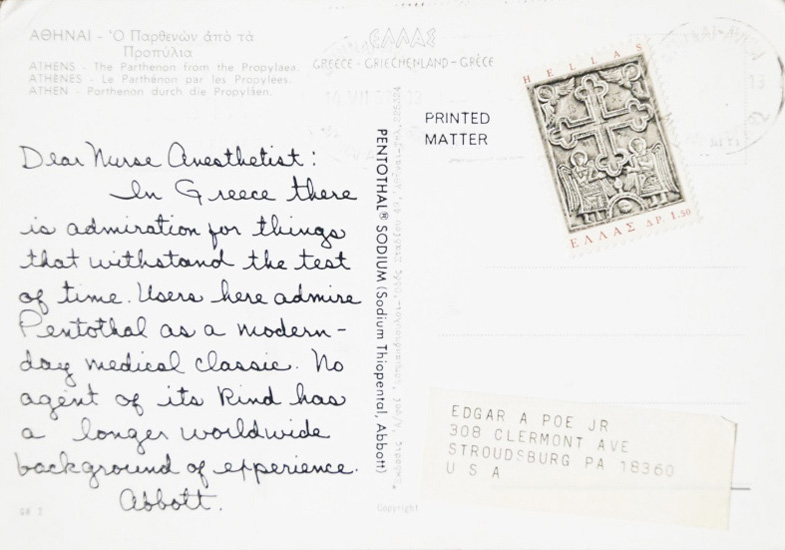 ΑΘΗΝΑΙ - Ὁ Παρθενὼν ἀπὸ τὰ
Προπύλια
ATHENS - The Parthenon from the Propylaea.
ATHENES - Le Parthénon par les Propylées.
ATHEN - Parthenon durch die Propyläen.
Dear Nurse Anesthetist:
In Greece there
is admiration for things
that withstand the test
of time. Users here admire
Pentothal as a modern-
day medical classic. No
agent of its kind has
a longer worldwide
background of experience.
Abbott.
GR 2
PENTOTHAL® SODIUM (Sodium Thiopental, Abbott)
Copyright
ΕΛΛΑΣ
GREECE - GRIECHENLAND - GRÈCE
PRINTED
MATTER
HELLAS
ΕΛΛΑΣ ΔΡ. 1.50
EDGAR A POE JR
308 CLERMONT AVE
STROUDSBURG PA 18360
U S A